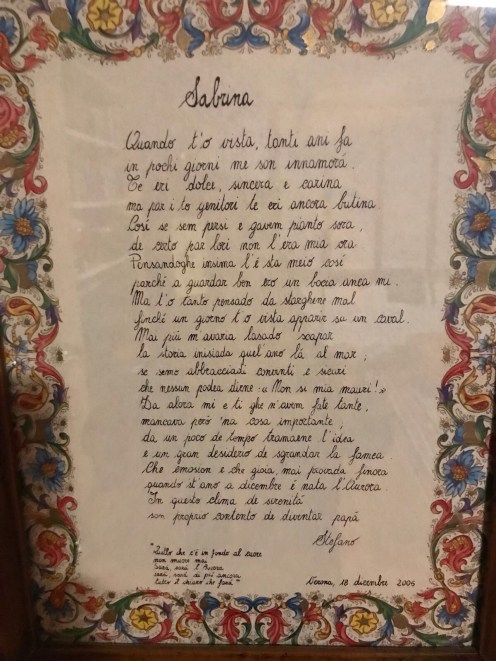 Sabrina
Quando t'o vista, tanti ani fa
in pochi giorni me son innamorà.
Te eri dolce, sincera e carina
ma par i to genitori te eri ancora butina
Così se sem persi e gavem pianto sora,
de certo par lori non l'era mia ora
Pensandoghe insima l'è sta meio così
parchè a guardar ben ero un bocia anca mi.
Ma t'o tanto pensado da starghene mal
finchè un giorno t'o vista apparir su un caval.
Mai più m'avaria lasado scapar
la storia inisiada quel'ano là al mar;
se semo abbracciadi convinti e sicuri
che nessun podea dirne: «Non si mia mauri!»
Da alora mi e ti ghe n'avem fate tante,
mancava però 'na cosa importante,
da un poco de tempo tramaene l'idea
e un gran desiderio de sgrandar la famea
Che emosion e che gioia, mai provada finora
quando st'ano a dicembre è nata l'Aurora
In questo clima de serenità
son proprio contento de diventar papà
Stefano
"Quello che c'è in fondo al cuore
non muore mai
sarà sarà l'Aurora
sarà sarà di più ancora
tutto il chiaro che farà"
Verona, 18 dicembre 2005